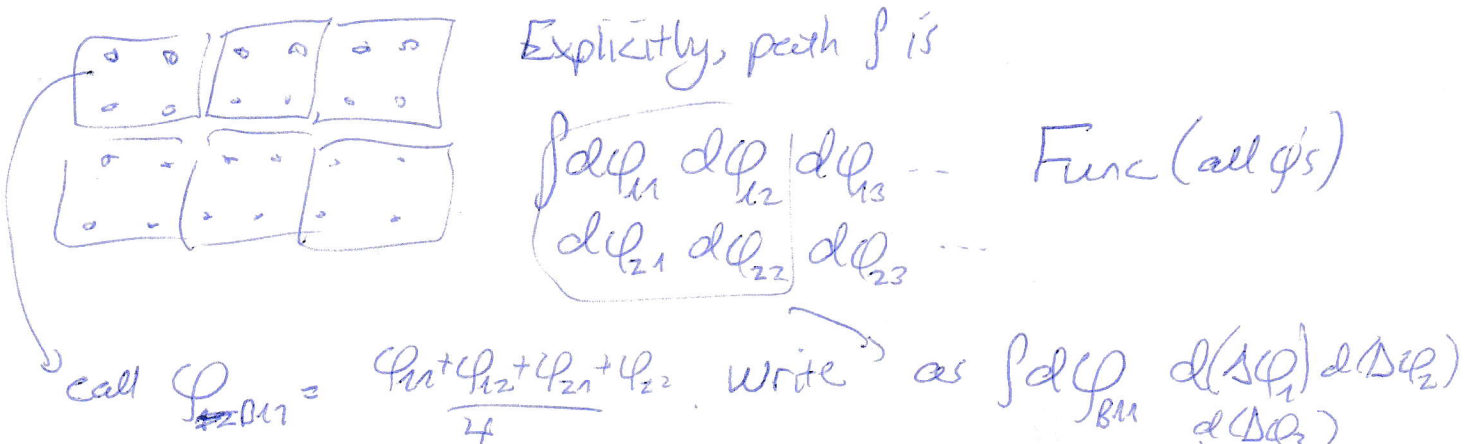 Explicitly, path ∫ is
∫ dφ₁₁ dφ₁₂ dφ₁₃ -- Func (all φ's)
dφ₂₁ dφ₂₂ dφ₂₃ ---
call φ_B11 = (φ₁₁+φ₁₂+φ₂₁+φ₂₂)/4 . Write as ∫ dφ_B11 d(Δφ₁) d(Δφ₂)
d(Δφ₃)